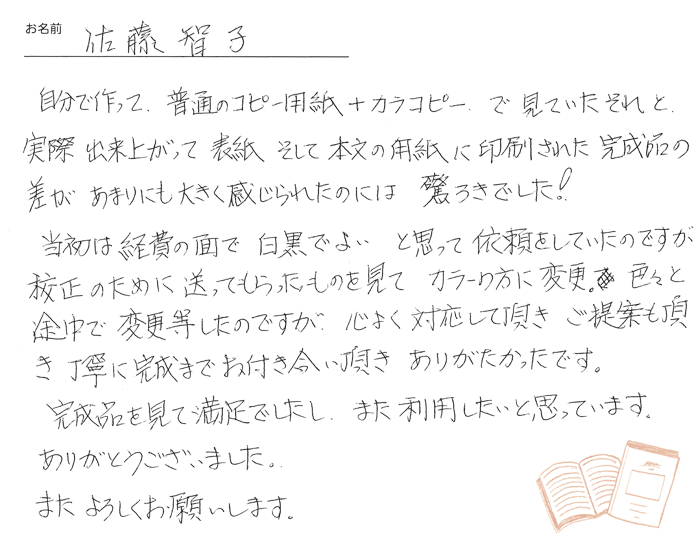 お名前 佐藤智子
自分で作って、普通のコピー用紙+カラコピー、で見ていたそれと、
実際出来上がって表紙そして本文の用紙に印刷された完成品の
差があまりにも大きく感じられたのには驚ろきでした!
当初は経費の面で白黒でよい と思って依頼をしていたのですが、
校正のために送ってもらったものを見てカラーの方に変更。色々と
途中で変更等したのですが、心よく対応して頂きご提案も頂
き丁寧に完成までお付き合い頂きありがたかったです。
完成品を見て満足でしたし、また利用したいと思っています。
ありがとうございました。
またよろしくお願いします。